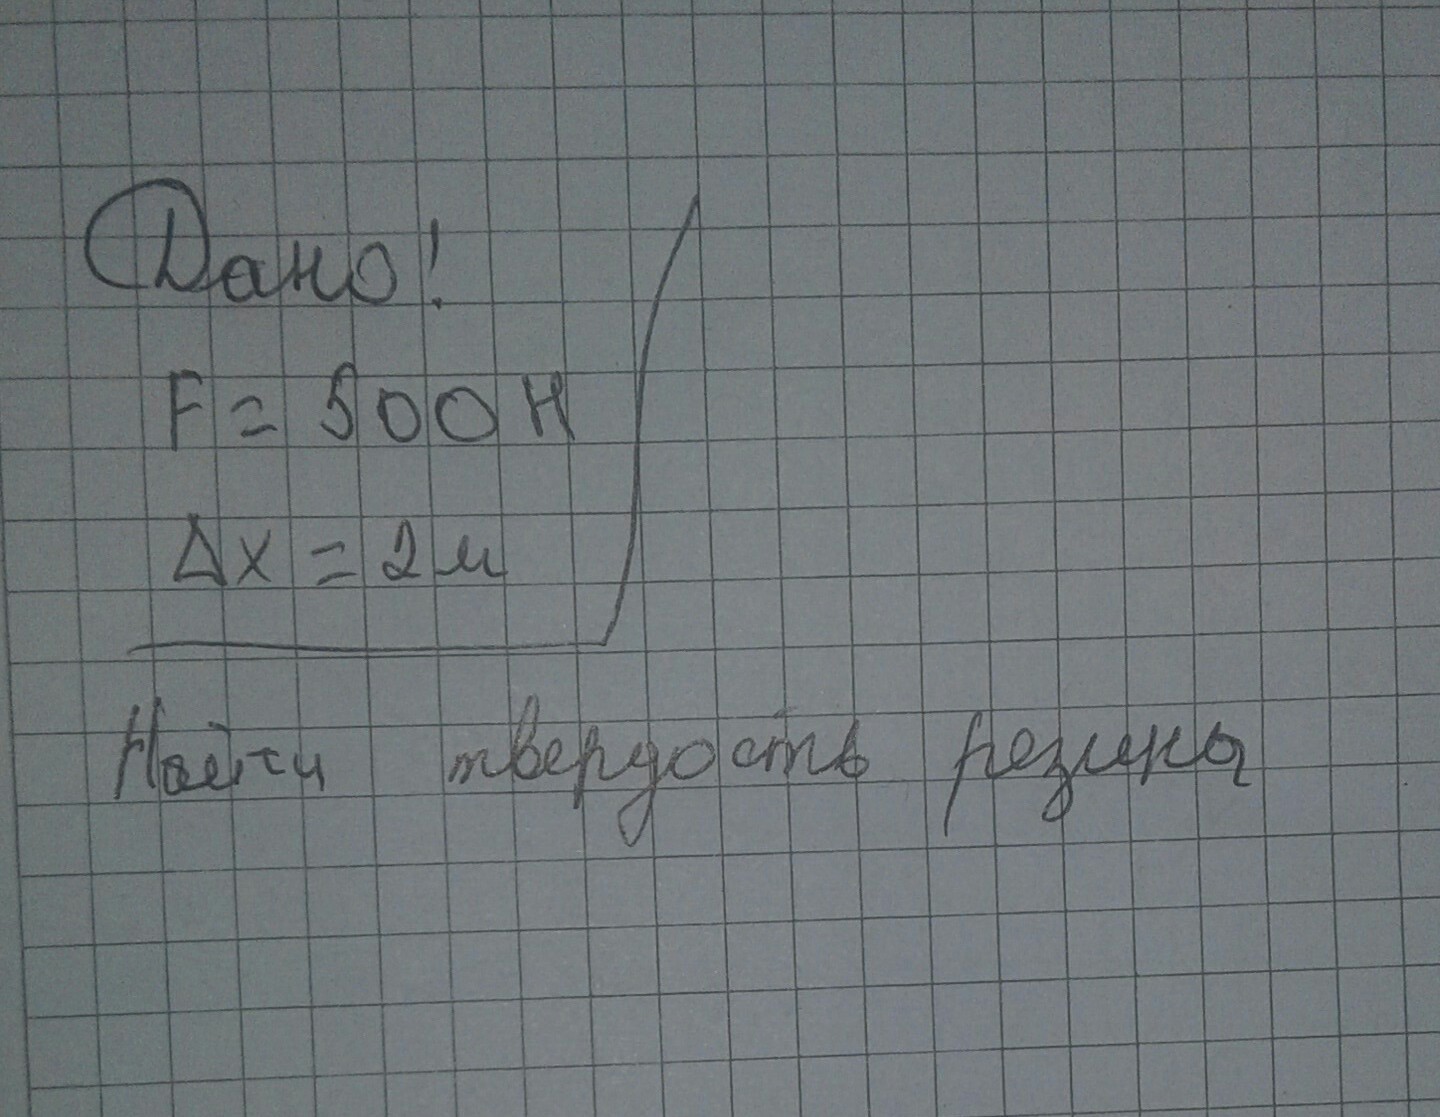 Дано!
F = 500 Н
Δx = 2 м
Найти твердость резины